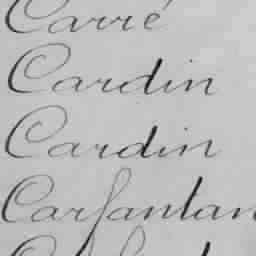 Carré
Cardin
Cardin
Carfantan